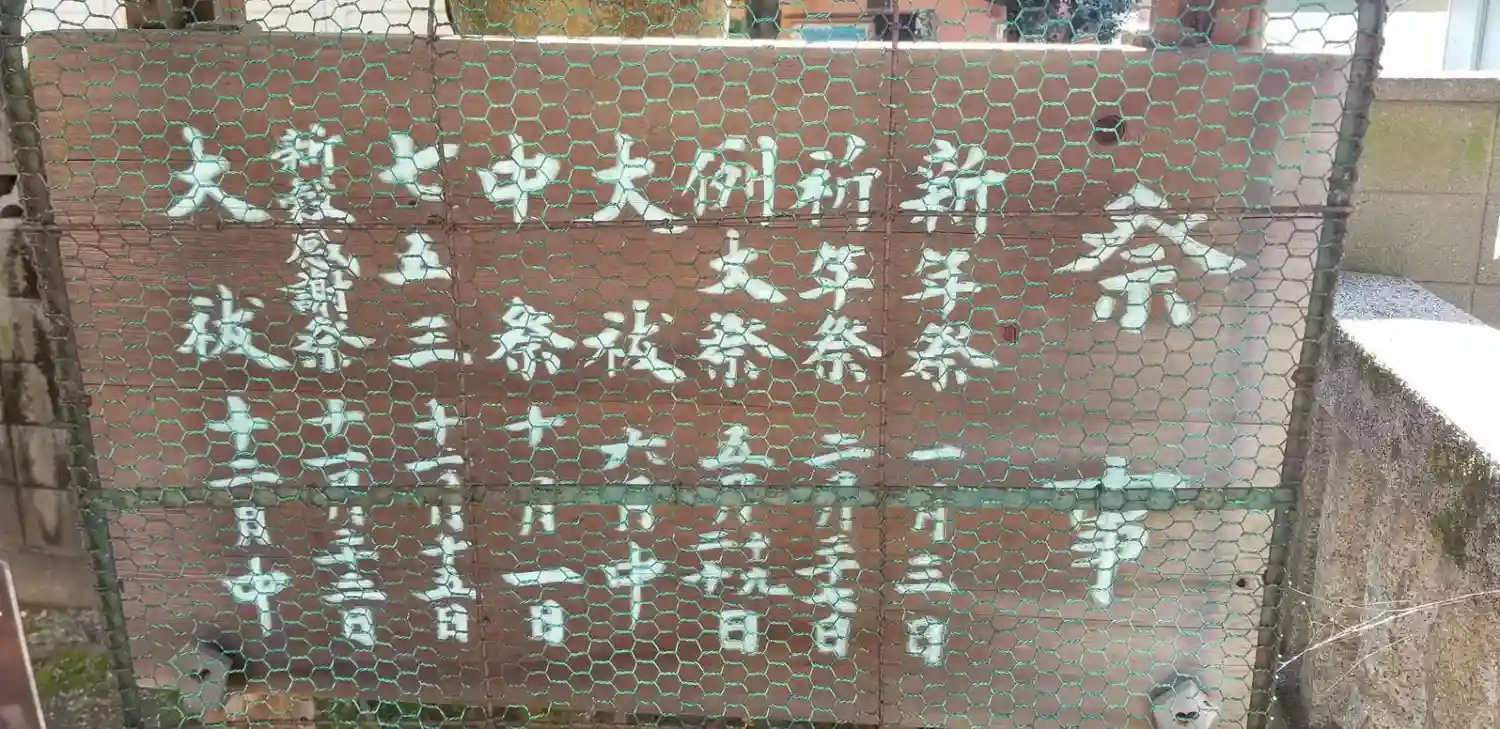 祭事
新年祭 一月三日
祈年祭 二月二十六日
例大祭 五月二十九日
大祓 六月中
中祭 十月一日
七五三 十一月十五日
新穀感謝祭 十一月二十三日
大祓 十二月中